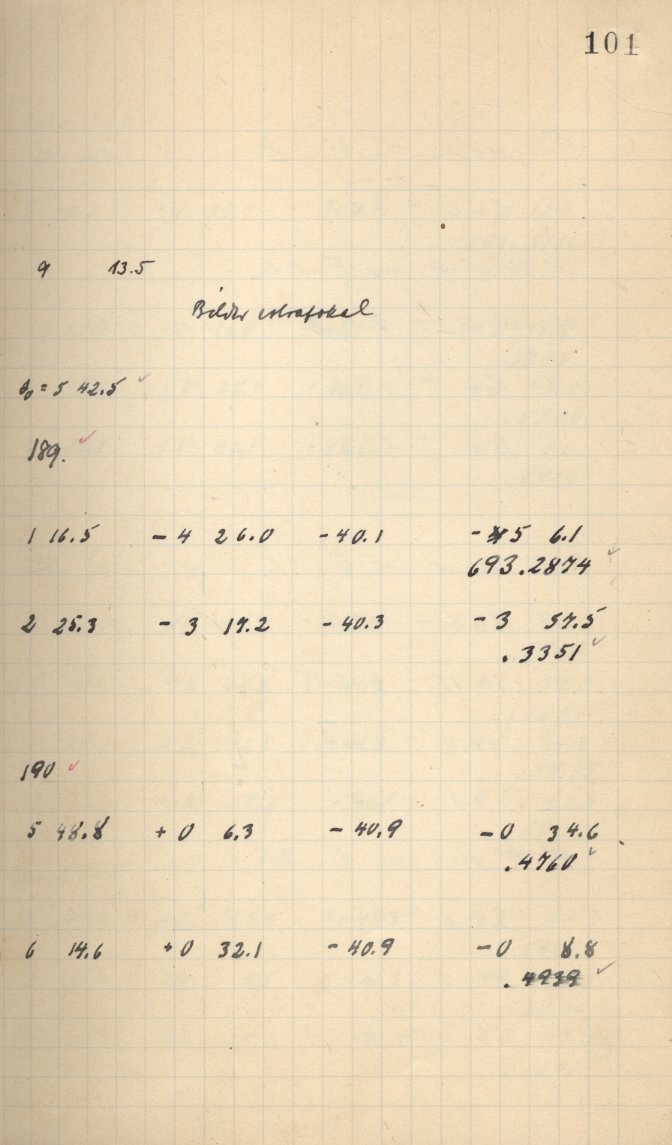 101
9 13.5
Bilder extrafokal
θ₀ = 5 42.5 ✓
189. ✓
1 16.5 - 4 26.0 - 40.1 - 5 6.1
693.2874 ✓
2 25.3 - 3 17.2 - 40.3 - 3 57.5
.3351 ✓
190 ✓
5 48.8 + 0 6.3 - 40.9 - 0 34.6
.4760 ✓
6 14.6 + 0 32.1 - 40.9 - 0 8.8
.4939 ✓